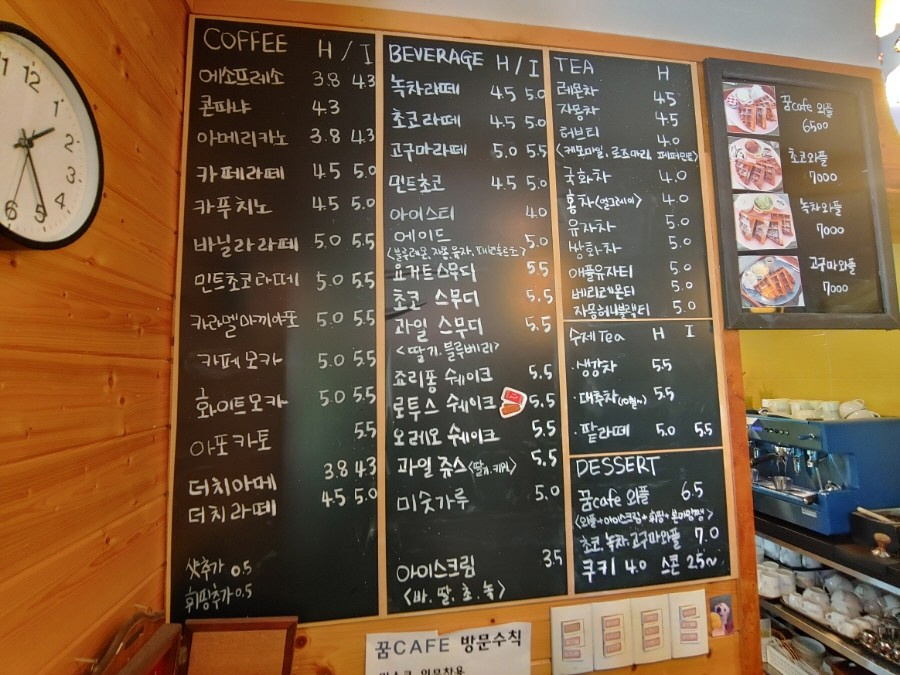 COFFEE H / I
에소프레소 3.8 4.3
콘파냐 4.3
아메리카노 3.8 4.3
카페라떼 4.5 5.0
카푸치노 4.5 5.0
바닐라라떼 5.0 5.5
민트초코라떼 5.0 5.5
카라멜마끼아또 5.0 5.5
카페모카 5.0 5.5
화이트모카 5.0 5.5
아포카토 5.5
더치아메 3.8 4.3
더치라떼 4.5 5.0
샷추가 0.5
휘핑추가 0.5
BEVERAGE H / I
녹차라떼 4.5 5.0
초코라떼 4.5 5.0
고구마라떼 5.0 5.5
민트초코 4.5 5.0
아이스티 4.0
에이드 5.0
요거트스무디 5.5
초코 스무디 5.5
과일 스무디 5.5
<딸기.블루베리>
죠리퐁 쉐이크 5.5
로투스 쉐이크 5.5
오레오 쉐이크 5.5
과일 쥬스<딸기.키위> 5.5
미숫가루 5.0
아이스크림 3.5
<바.딸.초.녹>
TEA H
레몬차 4.5
자몽차 4.5
허브티 4.0
<케모마일, 로즈마리, 페퍼민트>
국화차 4.0
홍차<얼그레이> 4.0
유자차 5.0
쌍화차 5.0
애플유자티 5.0
베리레몬티 5.0
자몽허니블랙티 5.0
수제Tea H I
·생강차 5.5
·대추차(10월~) 5.5
·팥라떼 5.0 5.5
DESSERT
꿈cafe 와플 6.5
초코.녹차.고구마와플 7.0
쿠키 4.0 스콘 2.5~
꿈cafe 와플
6500
초코와플
7000
녹차와플
7000
고구마와플
7000
11 12 1 2 3 4 5 6
꿈CAFE 방문수칙